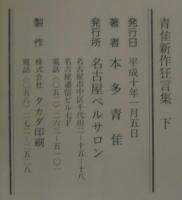 青佳新作狂言集 下
発行日 平成十年一月五日
著者 本多青佳
発行所 名古屋ベルサロン
名古屋市中区千代田二‐十五‐十八
名古屋通信ビル七F
電話（〇五二）二六三‐五一〇一
製作 株式会社 タカダ印刷
電話（〇五八）二七二‐二五二八